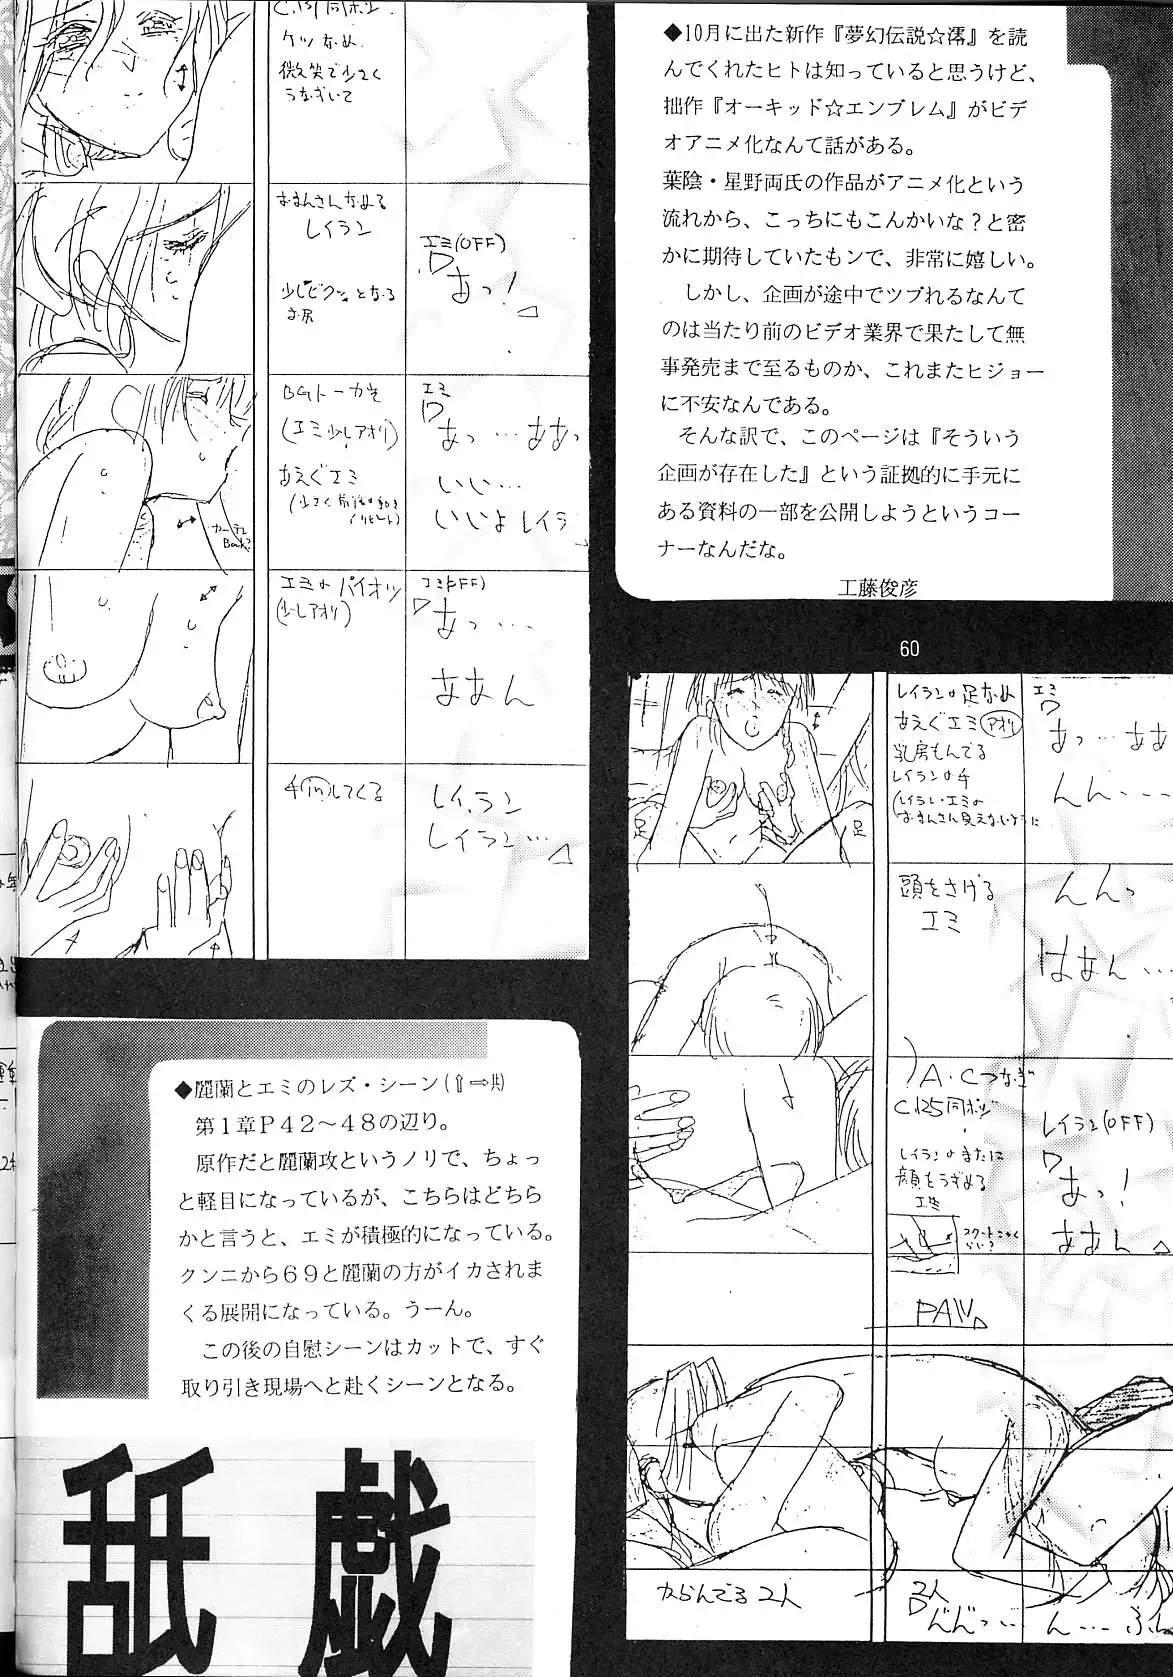 ◆10月に出た新作『夢幻伝説☆澪』を読
んでくれたヒトは知っていると思うけど、
拙作『オーキッド☆エンブレム』がビデ
オアニメ化なんて話がある。
葉陰・星野両氏の作品がアニメ化という
流れから、こっちにもこんかいな？と密
かに期待していたもンで、非常に嬉しい。
しかし、企画が途中でツブれるなんて
のは当たり前のビデオ業界で果たして無
事発売まで至るものか、これまたヒジョー
に不安なんである。
そんな訳で、このページは『そういう
企画が存在した』という証拠的に手元に
ある資料の一部を公開しようというコー
ナーなんだな。
工藤俊彦
60
微笑で少さく
うなずいて
レイラン
エミ(OFF)
あっ！
少しビクッとなる
お尻
エミ
(エミ少しアオリ)
あえぐエミ
あっ…ああっ
いい…
いいよレイラ
エミのパイオツ
(少しアオリ)
あっ…
ああん
手(in)してくる
レイラン
レイラン…
レイランの足なめ
あえぐエミ(アオリ)
乳房もんでる
レイランの手
足
足
エミ
あっ…ああ
んん…
頭をさげる
エミ
んんっ
はあん…
A・Cつなぎ
C125同ポジ
レイランのまたに
顔をうずめる
エミ
レイラン(OFF)
あっ！
ああん
PAN
からんでる2人
2人
んんっ…
ん…ふん
◆麗蘭とエミのレズ・シーン(⇧⇨共)
第１章Ｐ４２～４８の辺り。
原作だと麗蘭攻というノリで、ちょっ
と軽目になっているが、こちらはどちら
かと言うと、エミが積極的になっている。
クンニから６９と麗蘭の方がイカされま
くる展開になっている。うーん。
この後の自慰シーンはカットで、すぐ
取り引き現場へと赴くシーンとなる。
舐戯